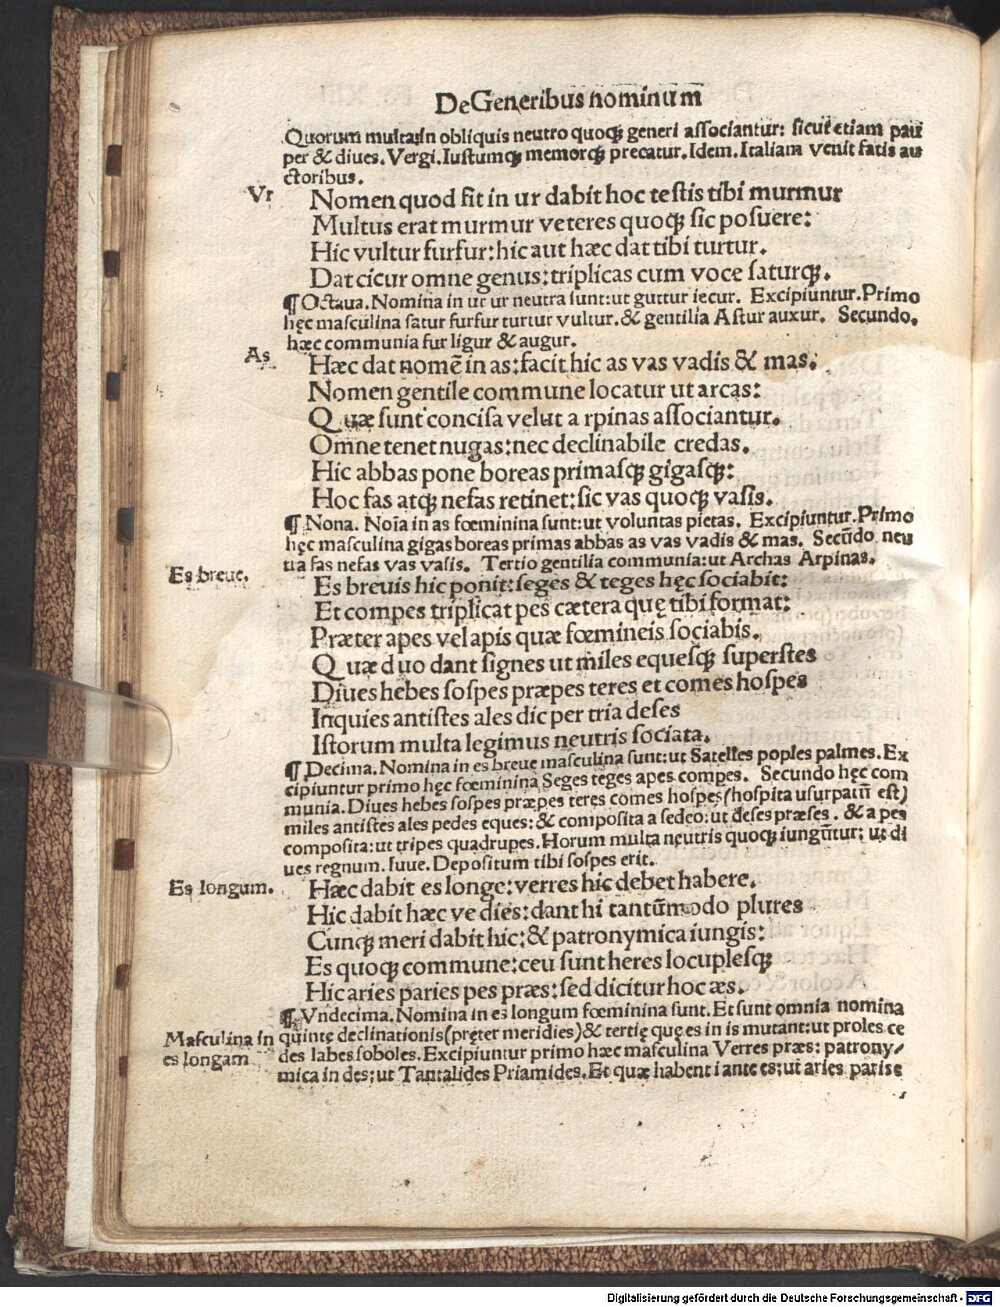 De Generibus nominum
Quorum multa in obliquis neutro quoqꝫ generi associantur: sicut etiam pau
per & diues. Vergi. Iustumqꝫ memorqꝫ precatur. Idem. Italiam venit fatis au
ctoribus.
Vr
Nomen quod fit in ur dabit hoc testis tibi murmur
Multus erat murmur veteres quoqꝫ sic posuere:
Hic vultur furfur: hic aut hæc dat tibi turtur.
Dat cicur omne genus: triplicas cum voce saturqꝫ.
¶ Octaua. Nomina in ur ur neutra sunt: ut guttur iecur. Excipiuntur. Primo
hęc masculina satur furfur turtur vultur. & gentilia Astur auxur. Secundo.
hæc communia fur ligur & augur.
As
Hæc dat nomē in as: facit hic as vas vadis & mas.
Nomen gentile commune locatur ut arcas:
Quæ sunt concisa velut arpinas associantur.
Omne tenet nugas: nec declinabile credas.
Hic abbas pone boreas primasqꝫ gigasqꝫ:
Hoc fas atqꝫ nefas retinet: sic vas quoqꝫ vasis.
¶ Nona. Noīa in as fœminina sunt: ut voluntas pietas. Excipiuntur. Primo
hęc masculina gigas boreas primas abbas as vas vadis & mas. Secūdo neu
tra fas nefas vas vasis. Tertio gentilia communia: ut Archas Arpinas.
Es breue.
Es breuis hic ponit: seges & teges hęc sociabit:
Et compes triplicat pes cætera quę tibi format:
Præter apes vel apis quæ fœmineis sociabis.
Quæ duo dant signes ut miles equesqꝫ superstes
Diues hebes sospes præpes teres et comes hospes
Inquies antistes ales dic per tria deses
Istorum multa legimus neutris sociata.
¶ Decima. Nomina in es breue masculina sunt: ut Satelles poples palmes. Ex
cipiuntur primo hęc fœminina Seges teges apes compes. Secundo hęc com
munia. Diues hebes sospes præpes teres comes hospes (hospita usurpatū est)
miles antistes ales pedes eques: & composita a sedeo: ut deses præses. & a pes
composita: ut tripes quadrupes. Horum multa neutris quoqꝫ iungūtur: ut di
ues regnum. Iuue. Depositum tibi sospes erit.
Es longum.
Hæc dabit es longe: verres hic debet habere.
Hic dabit hæc ve dies: dant hi tantūmodo plures
Cunqꝫ meri dabit hic: & patronymica iungis:
Es quoqꝫ commune: ceu sunt heres locuplesqꝫ
Hic aries paries pes præs: sed dicitur hoc æs.
¶ Vndecima. Nomina in es longum fœminina sunt. Et sunt omnia nomina
Masculina in
es longam
quinte declinationis (pręter meridies) & tertię quę es in is mutant: ut proles ce
des labes soboles. Excipiuntur primo hæc masculina Verres præs: patrony-
mica in des; ut Tantalides Priamides. Et quæ habent i ante es; ut aries parise
s
Digitalisierung gefördert durch die Deutsche Forschungsgemeinschaft - DFG